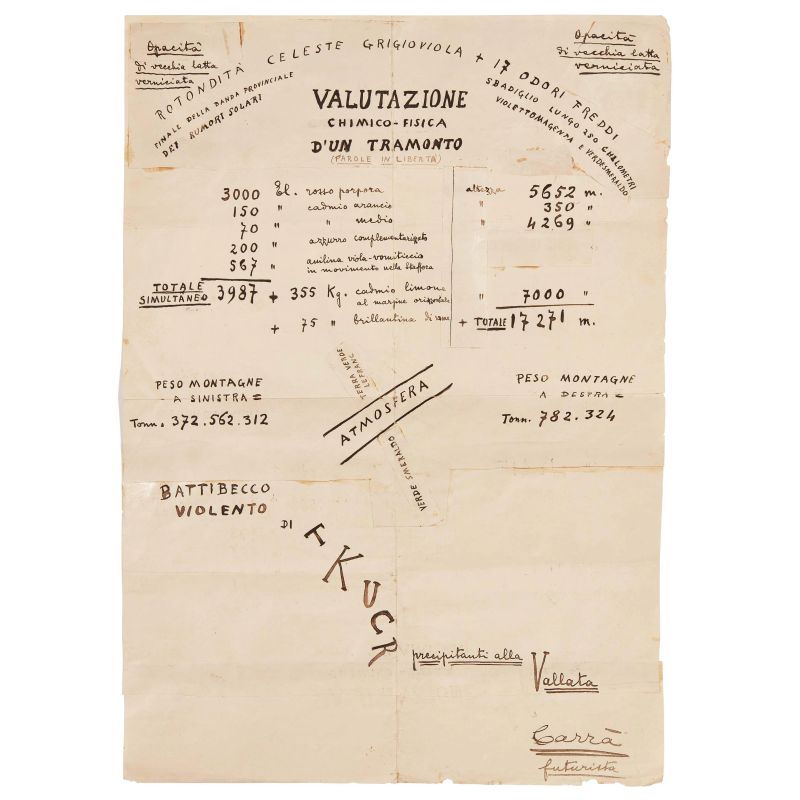 Opacità
di vecchia latta
verniciata
ROTONDITÀ CELESTE GRIGIOVIOLA + 17 ODORI FREDDI
FINALE DELLA BANDA PROVINCIALE
DEI RUMORI SOLARI
SBADIGLIO LUNGO 250 CHILOMETRI
VIOLETTOMAGENTA E VERDESMERALDO
Opacità
di vecchia latta
verniciata
VALUTAZIONE
CHIMICO-FISICA
D'UN TRAMONTO
(PAROLE IN LIBERTÀ)
3000 El. rosso porpora altezza 5652 m.
150 " cadmio arancio " 350 "
70 " " medio " 4269 "
200 " azzurro complementarizzato
567 " anilina viola-vomiticcio
in movimento nella Staffora
TOTALE
SIMULTANEO 3987 + 355 Kg. cadmio limone " 7000 "
al margine orizzontale
+ 75 " brillantina di rame + TOTALE 17271 m.
TERRA VERDE
LEFRANC
ATMOSFERA
VERDE SMERALDO
PESO MONTAGNE
A SINISTRA =
Tonn. 372.562.312
PESO MONTAGNE
A DESTRA =
Tonn. 782.324
BATTIBECCO
VIOLENTO
DI
T K U C R
precipitanti alla
Vallata
Carrà
futurista